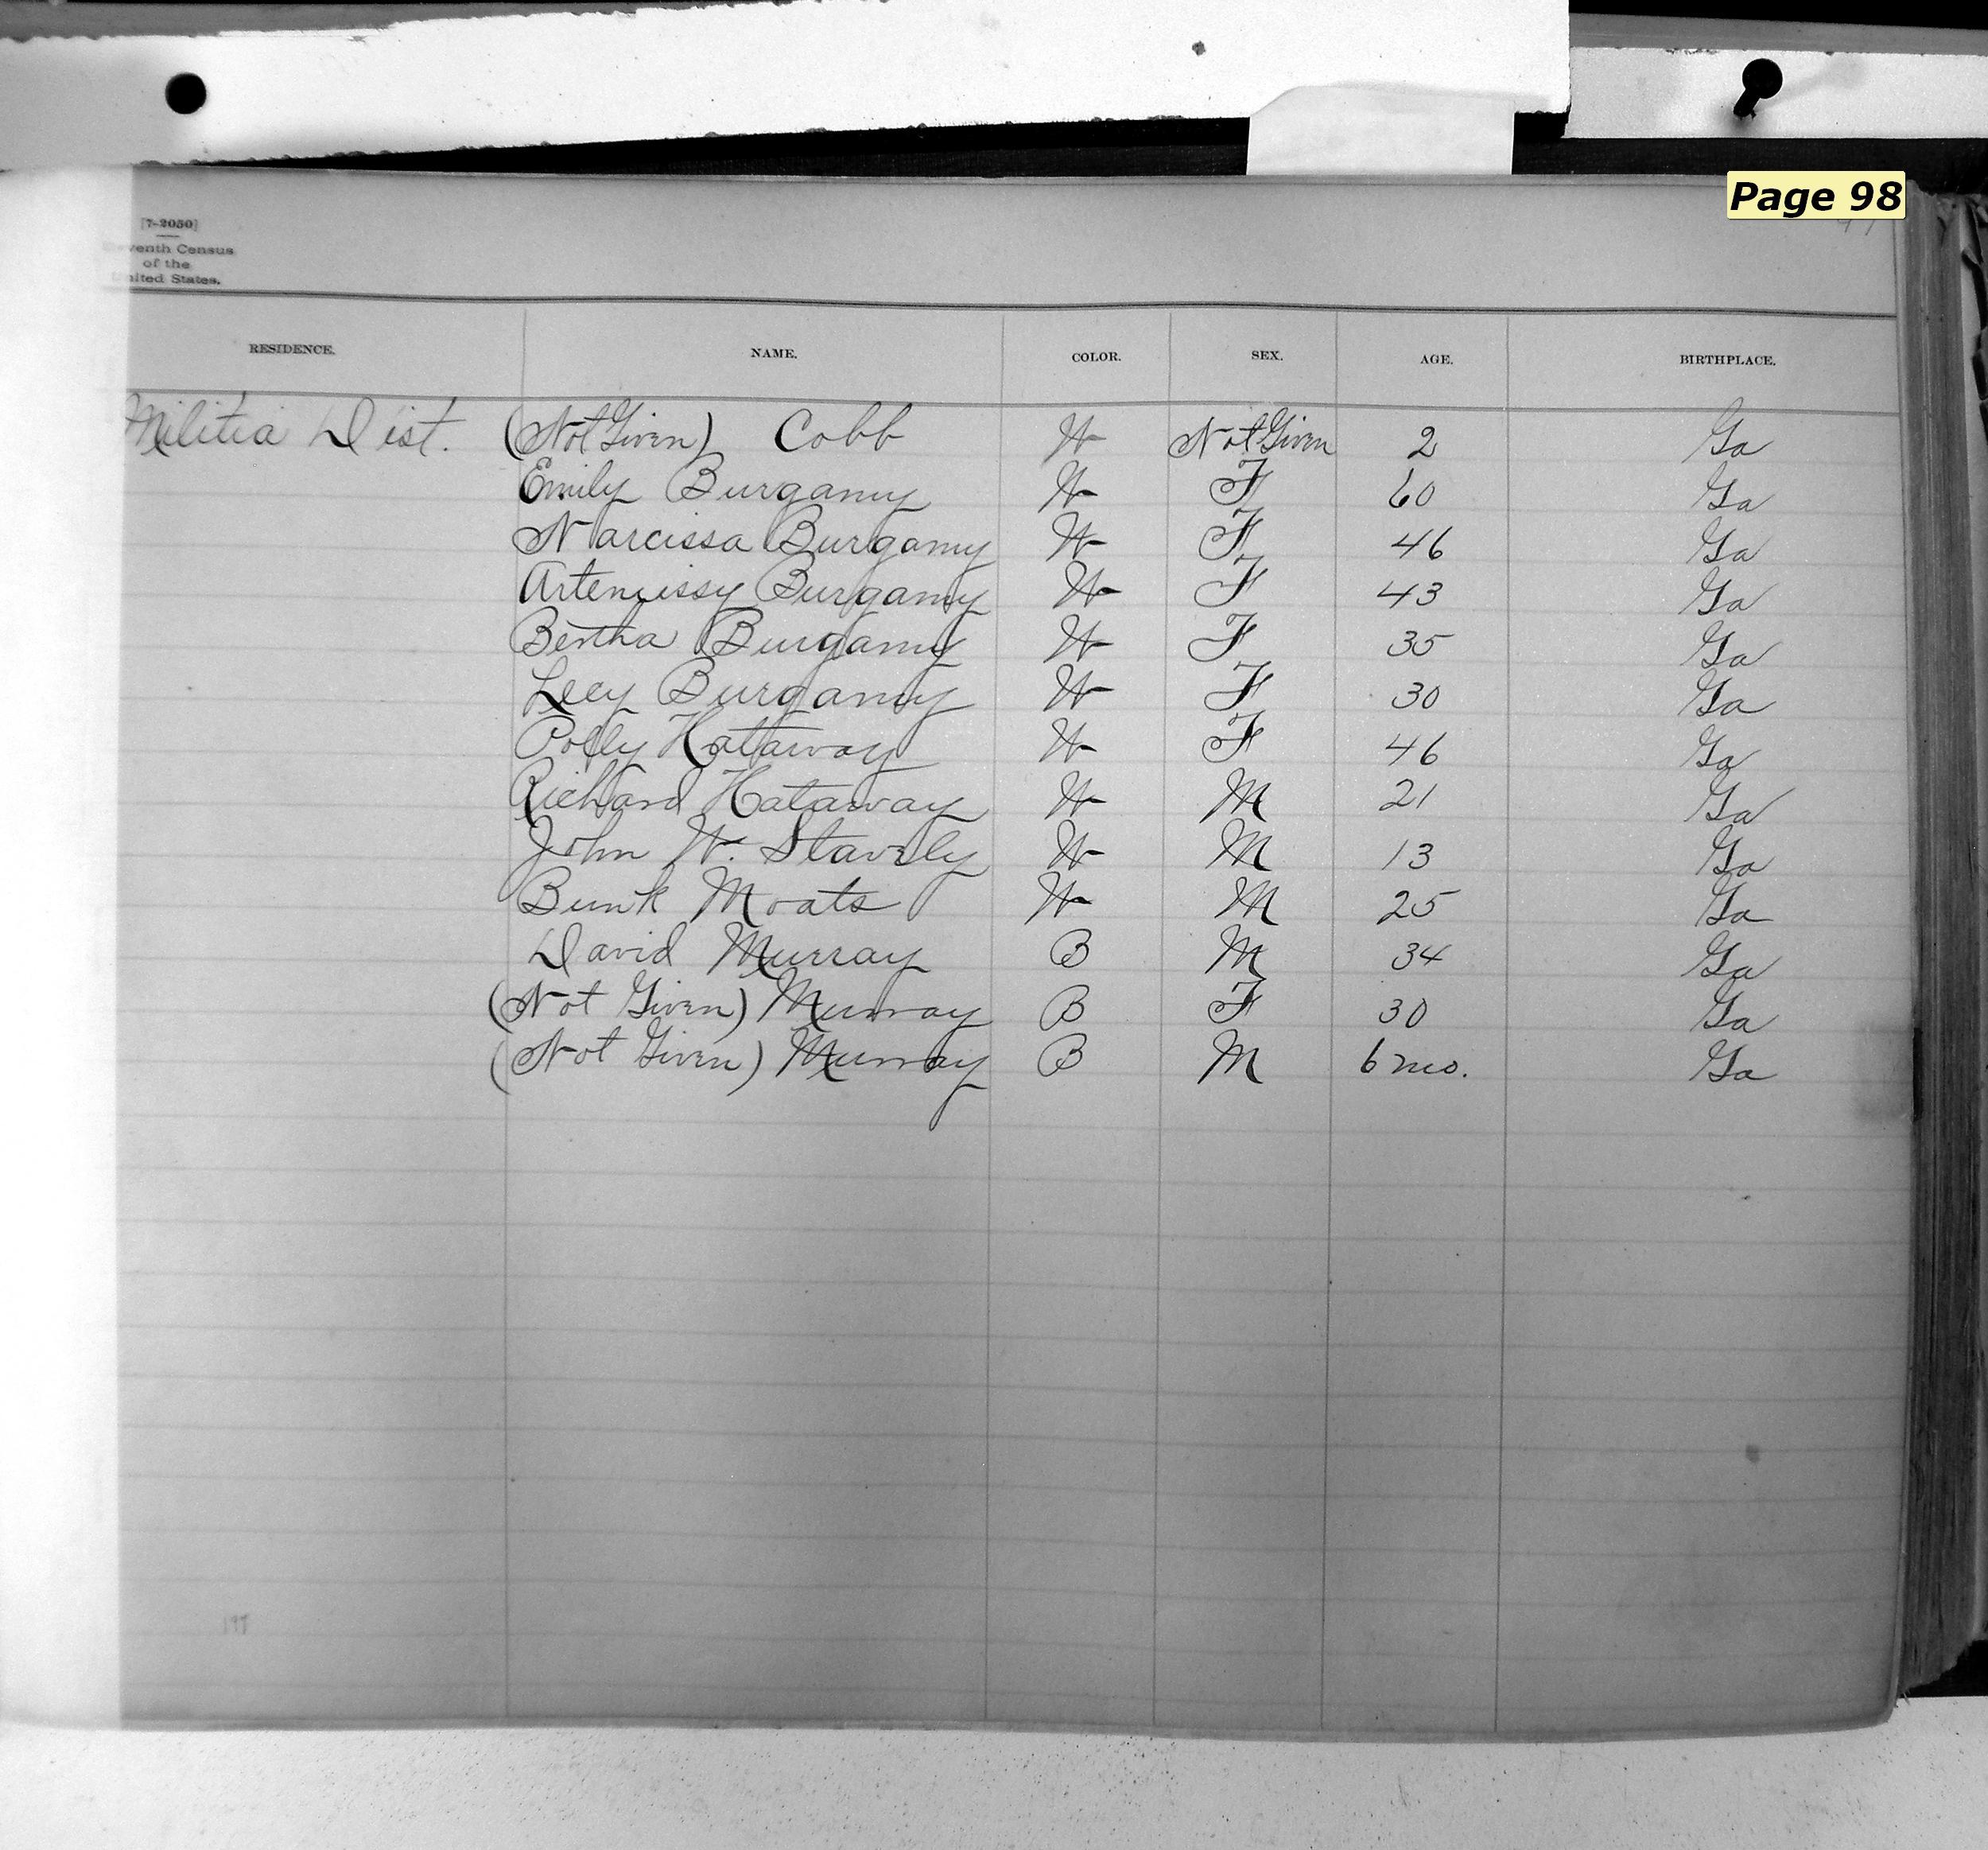 Page 98
[7-2050]
Eleventh Census
of the
United States.
RESIDENCE. NAME. COLOR. SEX. AGE. BIRTHPLACE.
Militia Dist. (Not Given) Cobb W Not Given 2 Ga
Emily Burgamy W F 60 Ga
Narcissa Burgamy W F 46 Ga
Artemissy Burgamy W F 43 Ga
Bertha Burgamy W F 35 Ga
Lecy Burgamy W F 30 Ga
Polly Hataway W F 46 Ga
Richard Hataway W M 21 Ga
John W. Stavely W M 13 Ga
Bunk Moats W M 25 Ga
David Murray B M 34 Ga
(Not Given) Murray B F 30 Ga
(Not Given) Murray B M 6 mo. Ga